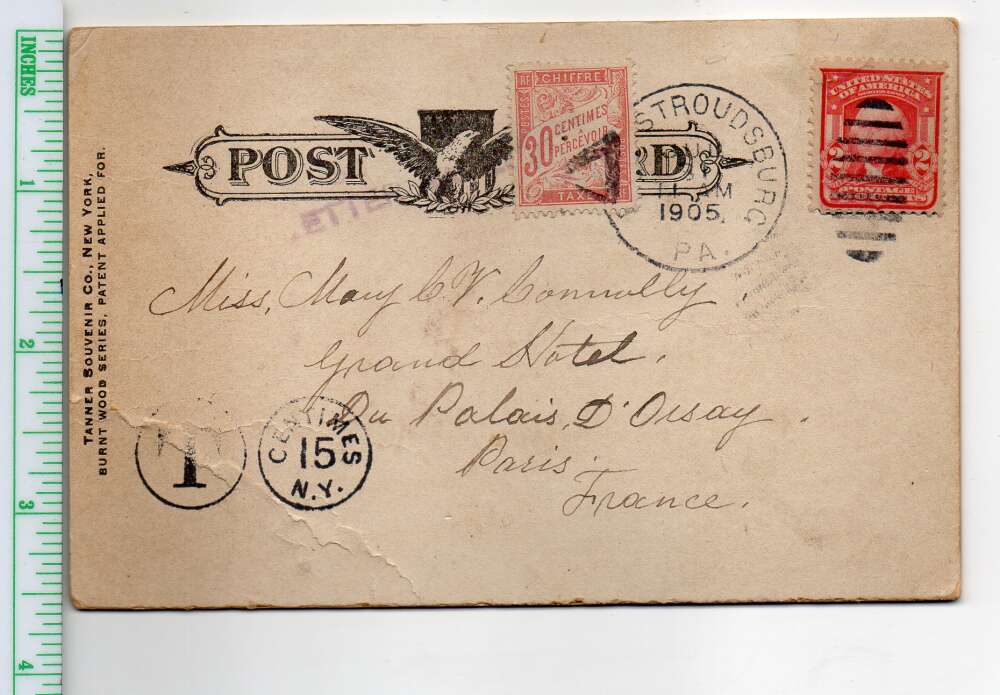 INCHES
1
2
3
4
TANNER SOUVENIR CO., NEW YORK,
BURNT WOOD SERIES, PATENT APPLIED FOR.
POST RD
CHIFFRE
RF
30 CENTIMES
A PERCEVOIR
TAXE
STROUDSBURG
1905
PA.
UNITED STATES
OF AMERICA
2 2
POSTAGE
ETTE
Miss, Mary C. V. Connolly
Grand Hotel.
Du Palais, D'Orsay.
Paris.
France.
T
CENTIMES
15
N.Y.